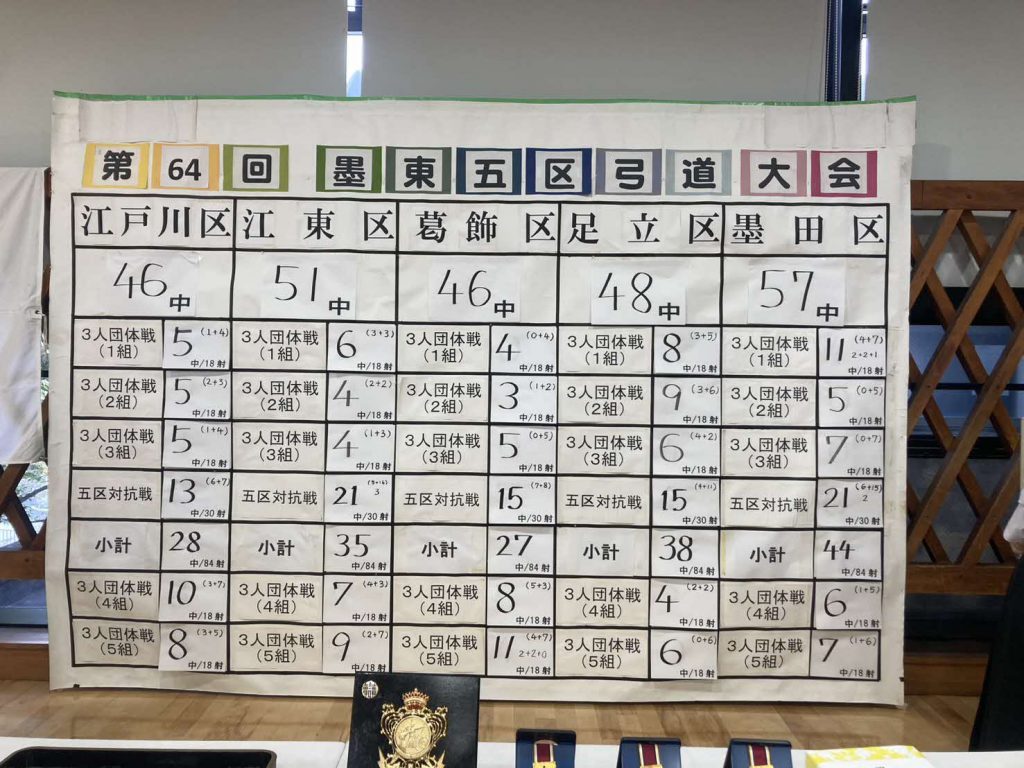 第64回 墨東五区弓道大会
江戸川区 江東区 葛飾区 足立区 墨田区
46中 51中 46中 48中 57中
3人団体戦(1組) 5 (1+4) 中/18射 3人団体戦(1組) 6 (3+3) 中/18射 3人団体戦(1組) 4 (0+4) 中/18射 3人団体戦(1組) 8 (3+5) 中/18射 3人団体戦(1組) 11 (4+7) 2+2+1 中/18射
3人団体戦(2組) 5 (2+3) 中/18射 3人団体戦(2組) 4 (2+2) 中/18射 3人団体戦(2組) 3 (1+2) 中/18射 3人団体戦(2組) 9 (3+6) 中/18射 3人団体戦(2組) 5 (0+5) 中/18射
3人団体戦(3組) 5 (1+4) 中/18射 3人団体戦(3組) 4 (1+3) 中/18射 3人団体戦(3組) 5 (0+5) 中/18射 3人団体戦(3組) 6 (4+2) 中/18射 3人団体戦(3組) 7 (0+7) 中/18射
五区対抗戦 13 (6+7) 中/30射 五区対抗戦 21 3 中/30射 五区対抗戦 15 (7+8) 中/30射 五区対抗戦 15 (4+11) 中/30射 五区対抗戦 21 (6+15) 2 中/30射
小計 28 中/84射 小計 35 中/84射 小計 27 中/84射 小計 38 中/84射 小計 44 中/84射
3人団体戦(4組) 10 (3+7) 中/18射 3人団体戦(4組) 7 (4+3) 中/18射 3人団体戦(4組) 8 (5+3) 中/18射 3人団体戦(4組) 4 (2+2) 中/18射 3人団体戦(4組) 6 (1+5) 中/18射
3人団体戦(5組) 8 (3+5) 中/18射 3人団体戦(5組) 9 (2+7) 中/18射 3人団体戦(5組) 11 (4+7) 2+2+0 中/18射 3人団体戦(5組) 6 (0+6) 中/18射 3人団体戦(5組) 7 (1+6) 中/18射